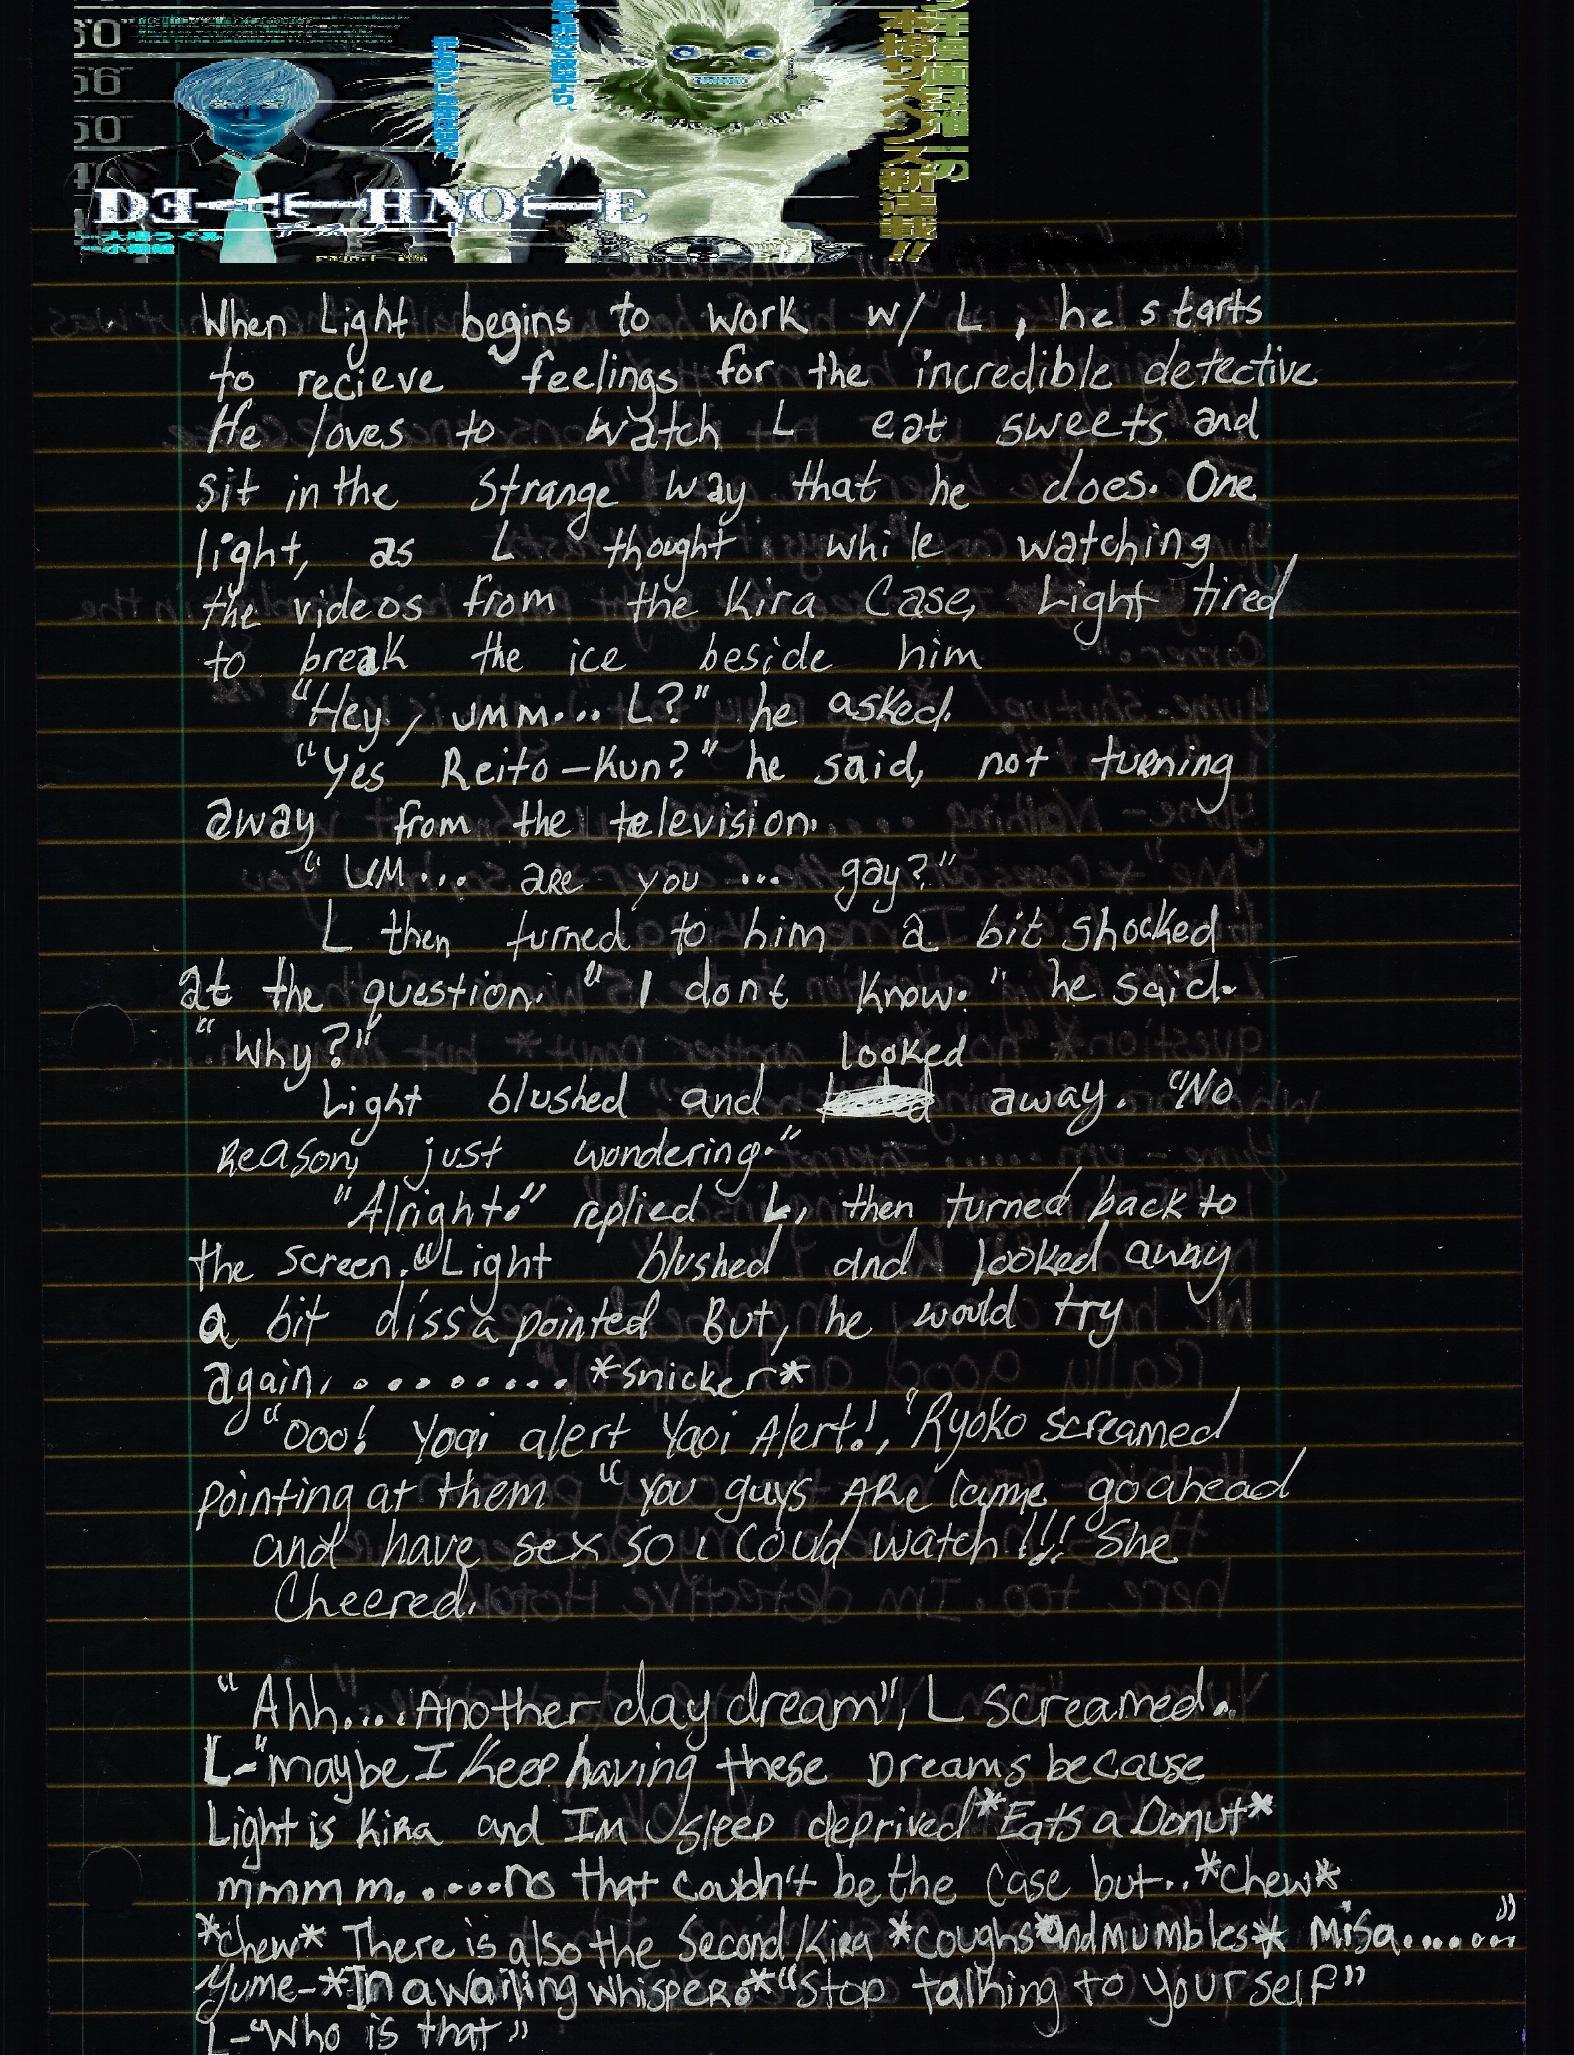 60
56
50
DEATHNOTE
デスノート
When Light begins to work w/ L, he starts
to recieve feelings for the incredible detective
He loves to watch L eat sweets and
sit in the strange way that he does. One
light, as L thought while watching
the videos from the Kira Case, Light tired
to break the ice beside him
"Hey, umm... L?" he asked.
"Yes Reito-Kun?" he said, not turning
away from the television.
"UM... are you ... gay?"
L then turned to him a bit shocked
at the question. "I dont know." he said.
"Why?"
Light blushed and looked away. "No
Reason, just wondering."
"Alright." replied L, then turned back to
the screen. "Light blushed and looked away
a bit dissapointed But, he would try
again.......... *snicker*
"Ooo! Yoai alert Yaoi Alert!," Ryoko screamed
pointing at them "you guys ARe layme, go ahead
and have sex so i could watch!!! She
Cheered.
"Ahh.... Another day dream", L screamed.
L-"maybe I Keep having these Dreams because
Light is Kira and Im sleep deprived *Eats a Donut*
mmmm......no that couldn't be the case but.. *chew*
*chew* There is also the Second Kira *coughs and mumbles* Misa......."
Yume-*In a wailing whisper* "Stop talking to yourself"
L-"Who is that"